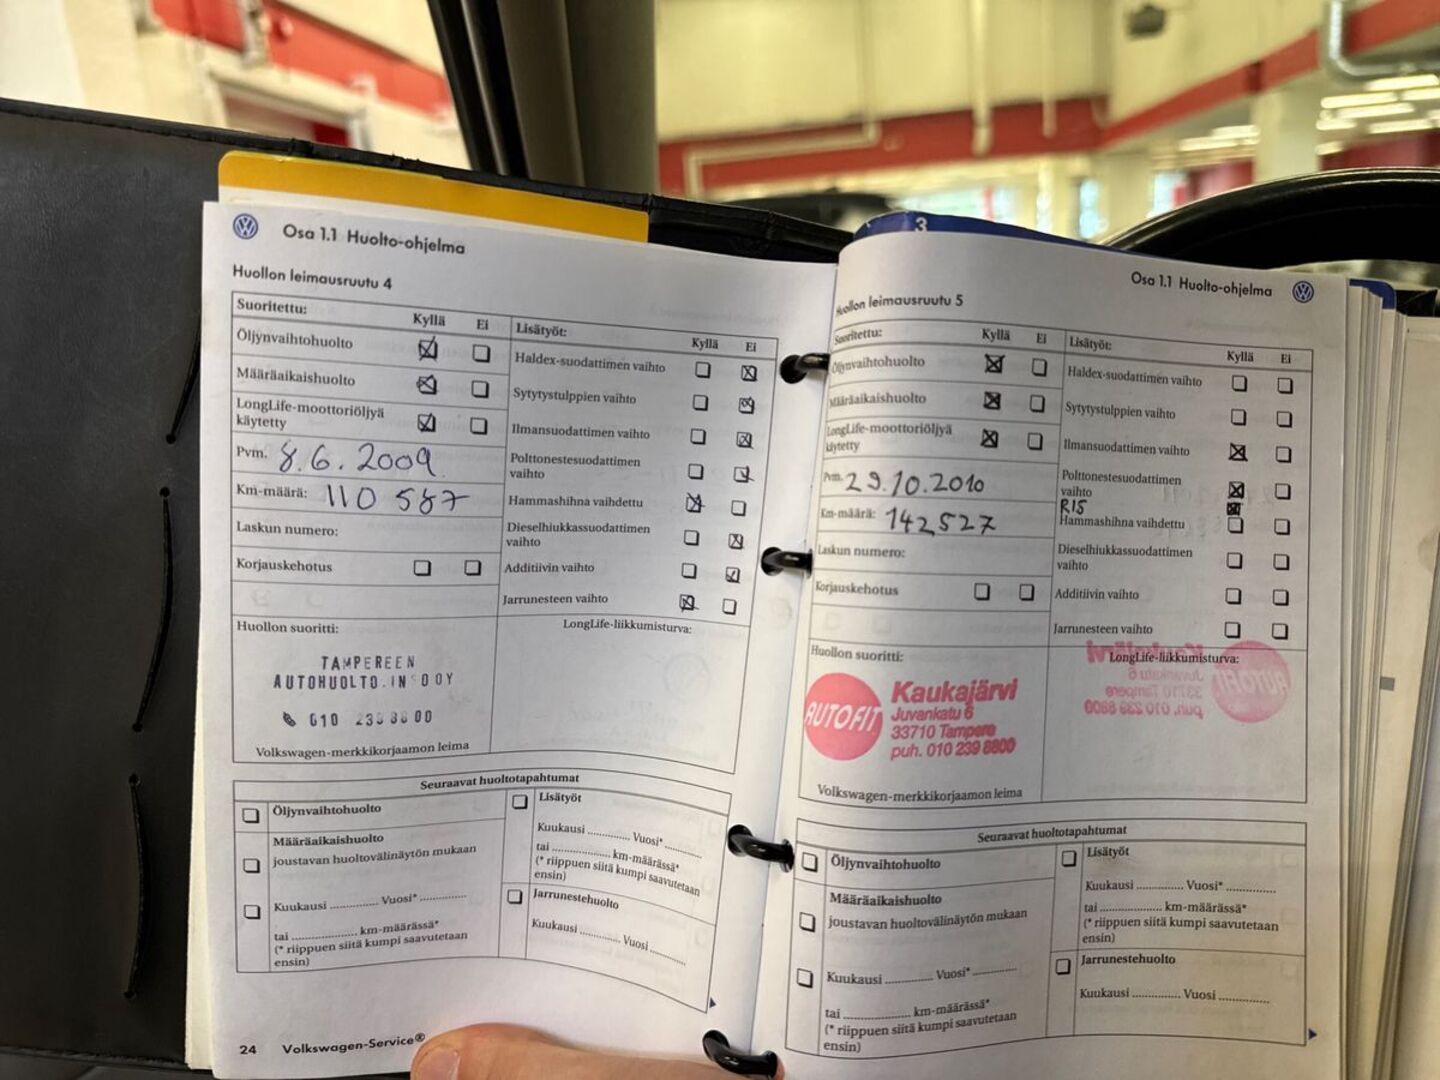 Osa 1.1 Huolto-ohjelma
Huollon leimausruutu 4
Suoritettu: Kyllä Ei
Öljynvaihtohuolto
Määräaikaishuolto
LongLife-moottoriöljyä
käytetty
Pvm. 8.6.2009
Km-määrä: 110 587
Laskun numero:
Korjauskehotus
Huollon suoritti:
TAMPEREEN
AUTOHUOLTO.IN OOY
010 239 8800
Volkswagen-merkkikorjaamon leima
Lisätyöt: Kyllä Ei
Haldex-suodattimen vaihto
Sytytystulppien vaihto
Ilmansuodattimen vaihto
Polttonestesuodattimen
vaihto
Hammashihna vaihdettu
Dieselhiukkassuodattimen
vaihto
Additiivin vaihto
Jarrunesteen vaihto
LongLife-liikkumisturva:
Seuraavat huoltotapahtumat
Öljynvaihtohuolto
Määräaikaishuolto
joustavan huoltovälinäytön mukaan
Kuukausi .............. Vuosi* ..............
tai .................... km-määrässä*
(* riippuen siitä kumpi saavutetaan
ensin)
Lisätyöt
Kuukausi .............. Vuosi* ..............
tai .................... km-määrässä*
(* riippuen siitä kumpi saavutetaan
ensin)
Jarrunestehuolto
Kuukausi .............. Vuosi ..............
24 Volkswagen-Service®
3
Osa 1.1 Huolto-ohjelma
Huollon leimausruutu 5
Suoritettu: Kyllä Ei
Öljynvaihtohuolto
Määräaikaishuolto
LongLife-moottoriöljyä
käytetty
Pvm. 29.10.2010
Km-määrä: 142527
Laskun numero:
Korjauskehotus
Huollon suoritti:
AUTOFIT
Kaukajärvi
Juvankatu 6
33710 Tampere
puh. 010 239 8800
Volkswagen-merkkikorjaamon leima
Lisätyöt: Kyllä Ei
Haldex-suodattimen vaihto
Sytytystulppien vaihto
Ilmansuodattimen vaihto
Polttonestesuodattimen
vaihto
RIS
Hammashihna vaihdettu
Dieselhiukkassuodattimen
vaihto
Additiivin vaihto
Jarrunesteen vaihto
LongLife-liikkumisturva:
Seuraavat huoltotapahtumat
Öljynvaihtohuolto
Määräaikaishuolto
joustavan huoltovälinäytön mukaan
Kuukausi .............. Vuosi* ..............
tai .................... km-määrässä*
(* riippuen siitä kumpi saavutetaan
ensin)
Lisätyöt
Kuukausi .............. Vuosi* ..............
tai .................... km-määrässä*
(* riippuen siitä kumpi saavutetaan
ensin)
Jarrunestehuolto
Kuukausi .............. Vuosi ..............